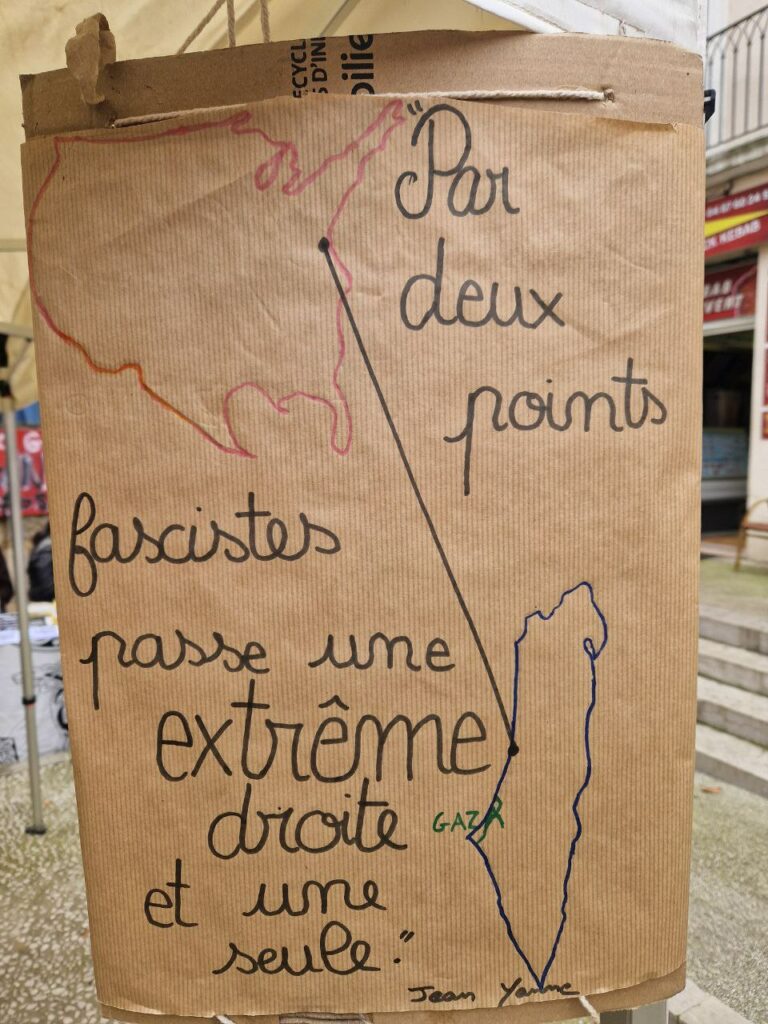 ECYCL
S D'IN
"Par
deux
points
fascistes
passe une
extrême
droite
et une
seule."
GAZA
Jean Yanne
KEBAB